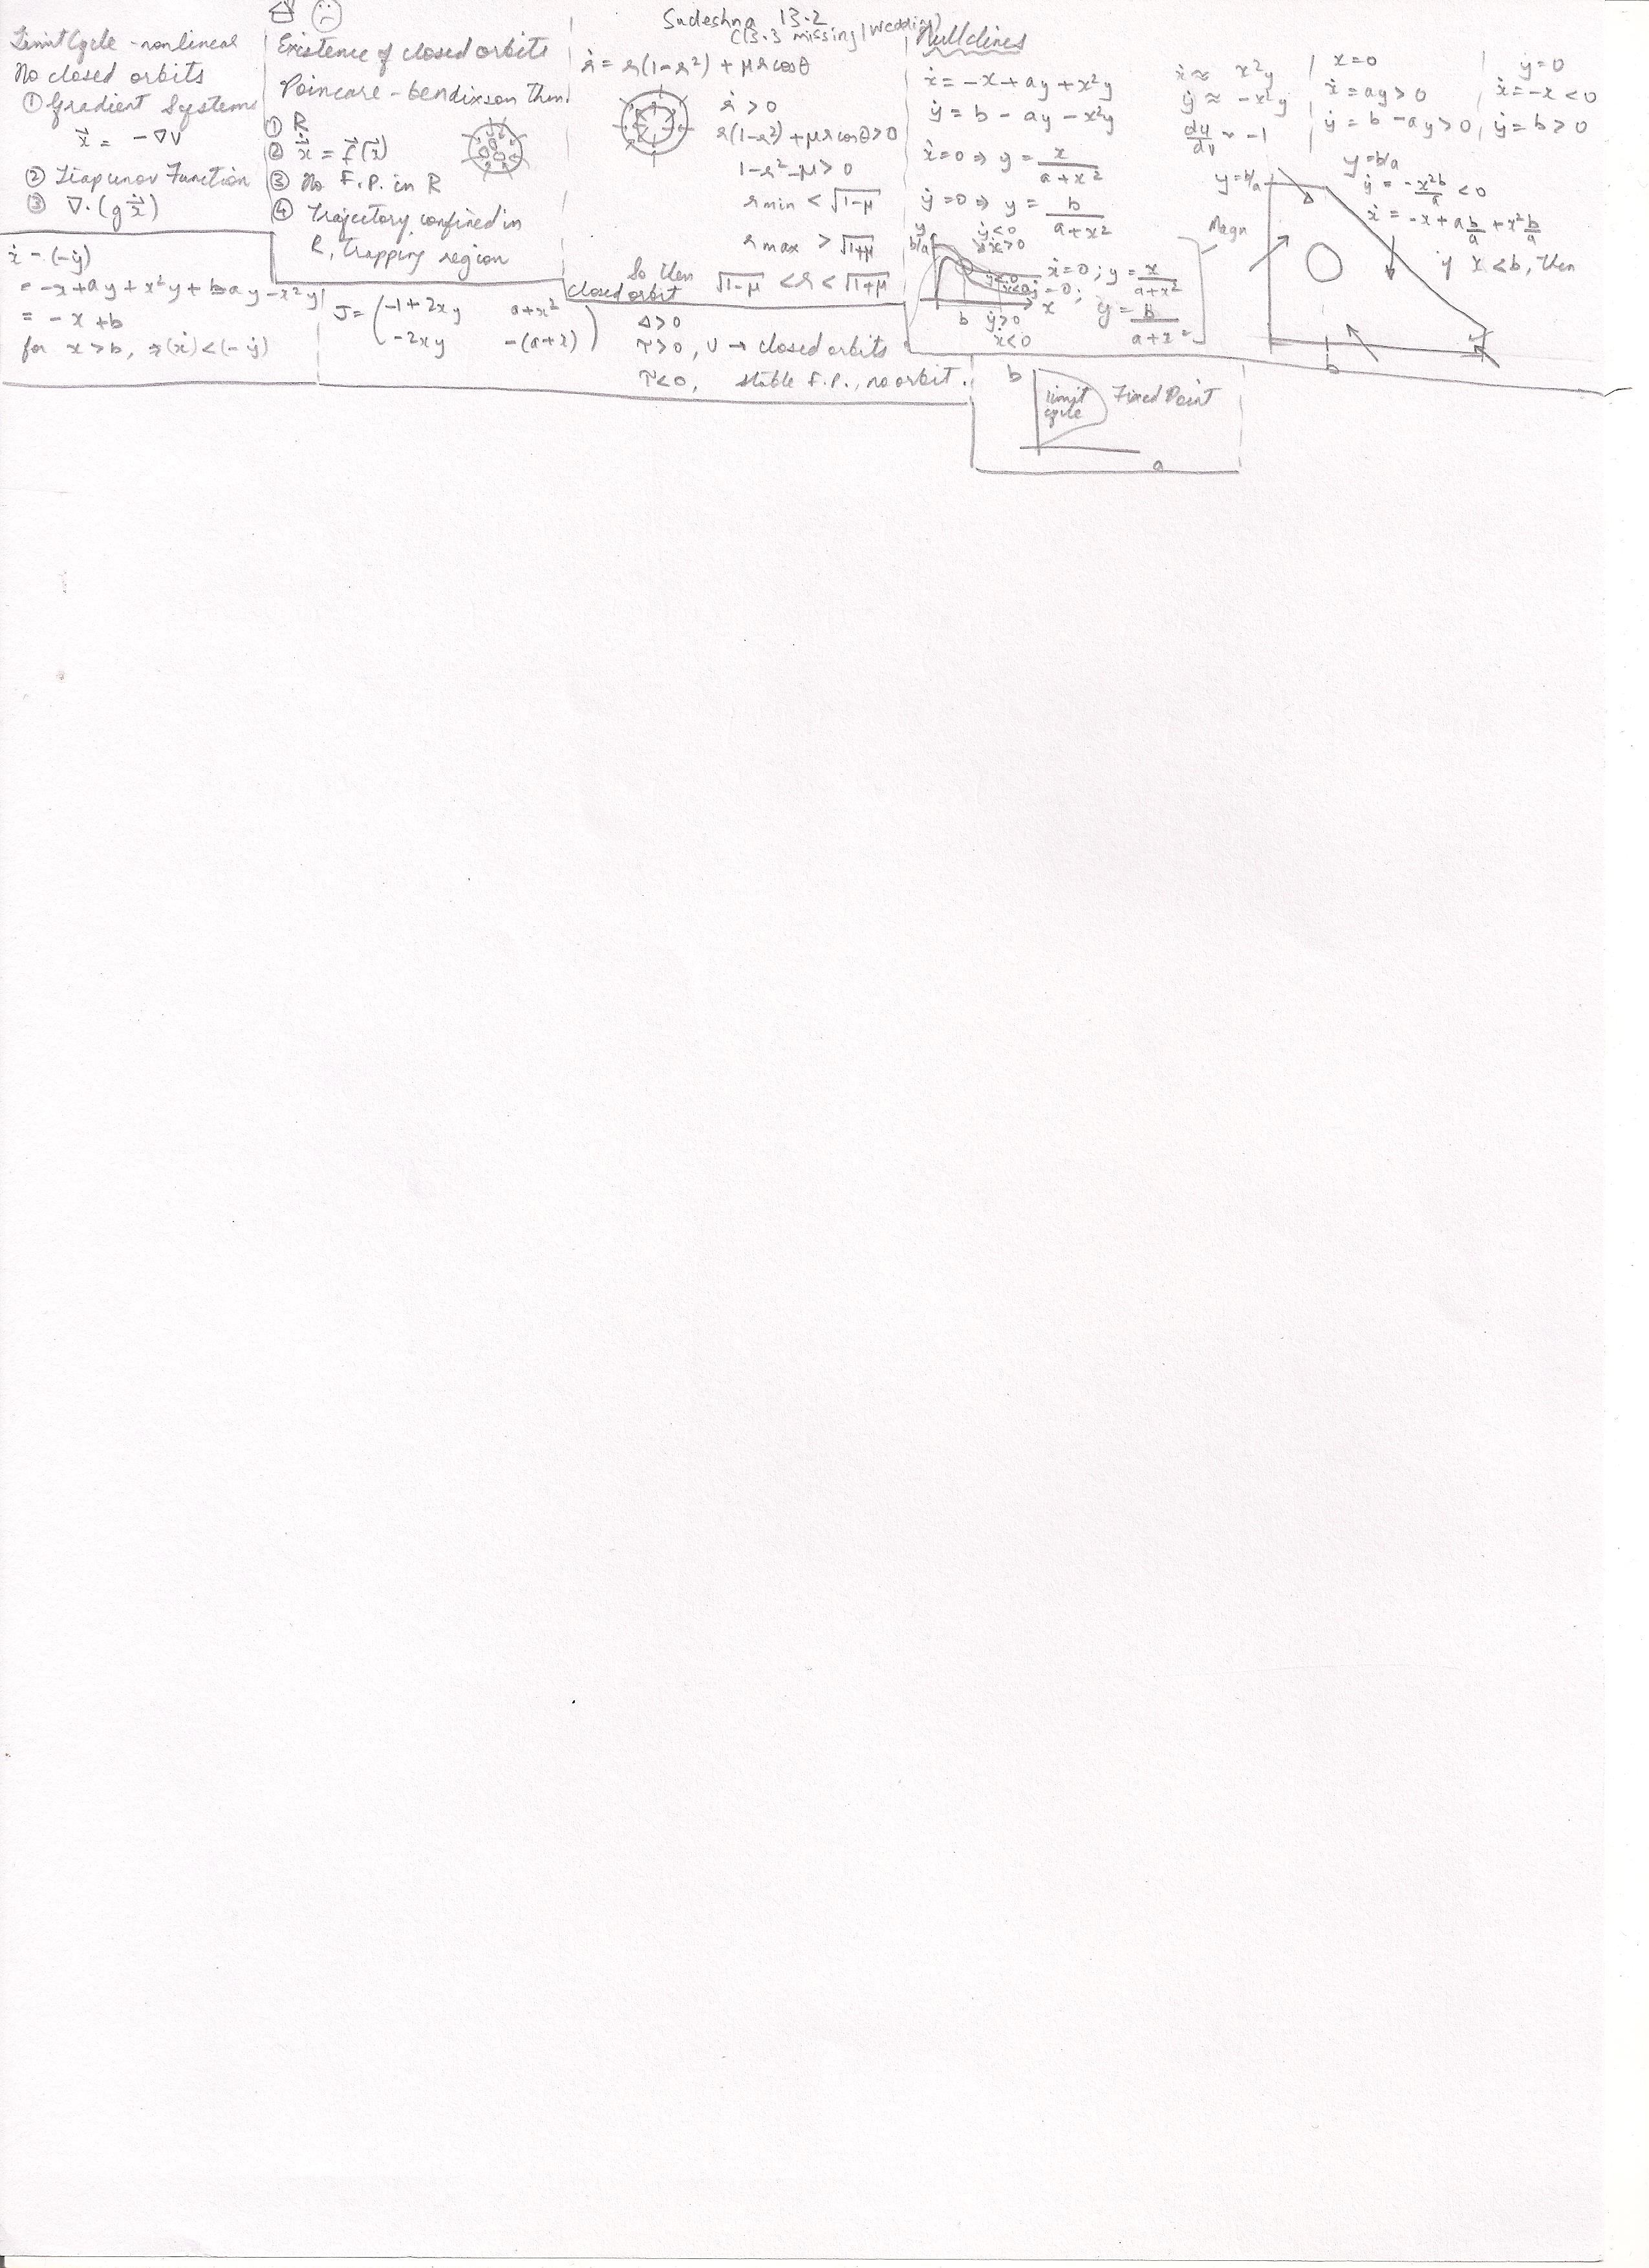 Sudeshna 13.2
(13.3 missing/wedding)
Limit Cycle - nonlinear
No closed orbits
① Gradient Systems
ẋ = -∇V
② Liapunov Function
③ ∇·(gẋ)
Existence of closed orbits
Poincare-bendixson thm.
① R
② ẋ = f(x)
③ No F.P. in R
④ Trajectory confined in
R, trapping region
ṙ = r(1-r²) + μr cosθ
ṙ > 0
r(1-r²) + μr cosθ > 0
1-r²-μ > 0
r min < √1-μ
r max > √1+μ
So then
closed orbit √1-μ < r < √1+μ
Nullclines
ẋ = -x + ay + x²y
ẏ = b - ay - x²y
ẋ=0 ⇒ y = x/(a+x²)
ẏ=0 ⇒ y = b/(a+x²)
y
b/a
ẏ<0
ẋ>0
ẏ<0
ẋ<0
ẋ=0; y = x/(a+x²)
ẏ=0; y = b/(a+x²)
b ẏ>0 x
ẋ<0
ẋ ≈ x²y
ẏ ≈ -x²y
x=0
ẋ = ay > 0
ẏ = b - ay > 0
y=0
ẋ = -x < 0
ẏ = b > 0
Magn
y=b/a
y=b/a
ẏ = -x²b/a < 0
ẋ = -x + a b/a + x² b/a
if x < b, then
b
ẋ - (-ẏ)
= -x + ay + x²y + b - ay - x²y
= -x + b
for x > b, ⇒ (ẋ) < (-ẏ)
J = (-1+2xy a+x²
-2xy -(a+x²))
Δ>0
τ>0, U → closed orbits
τ<0, stable F.P., no orbit.
b
limit
cycle
Fixed Point
a